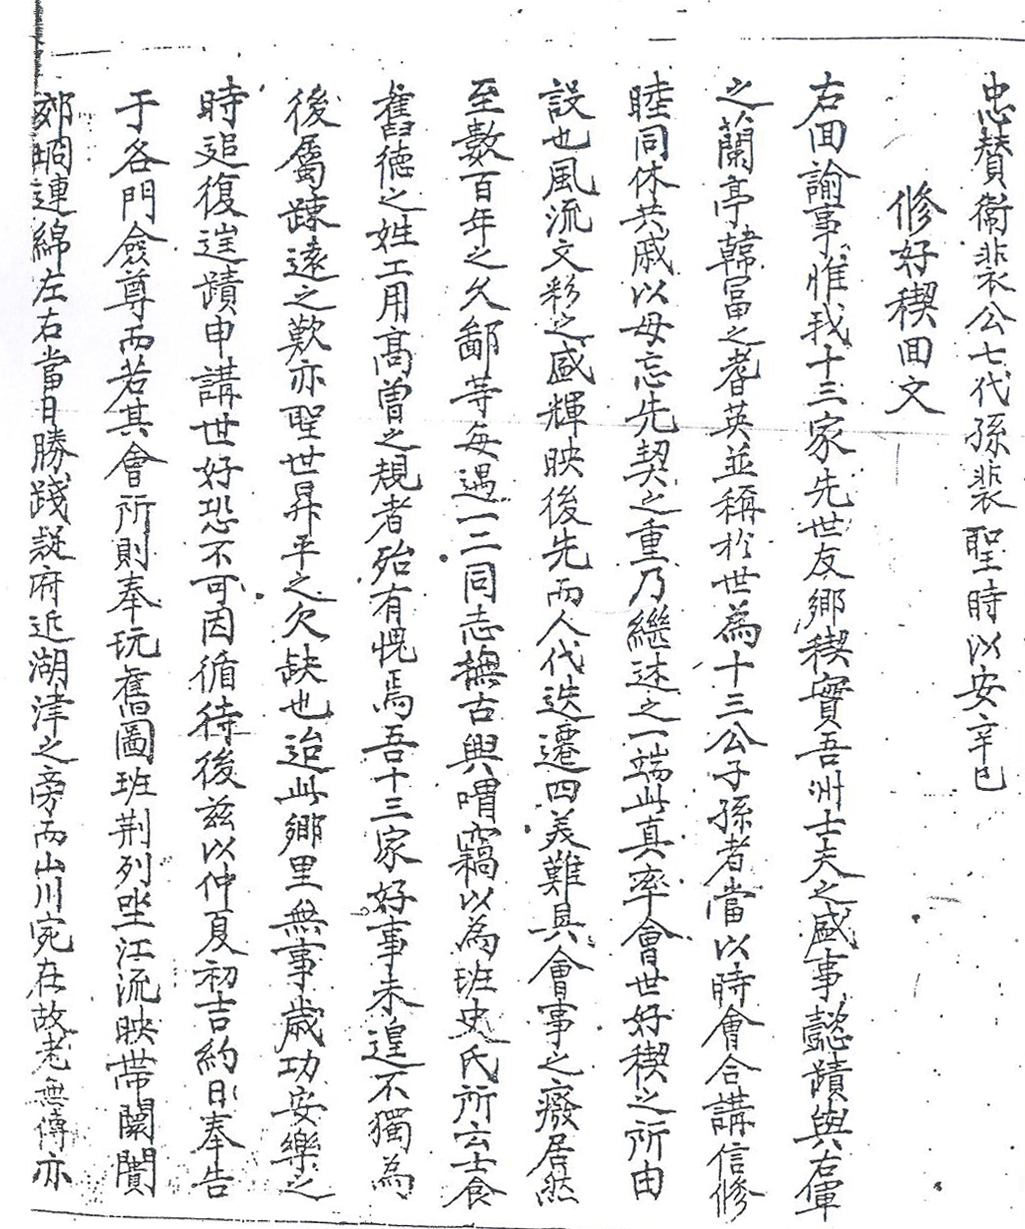 忠贊衛裴公七代孫裴聖時以安辛巳
修好稧回文
右回諭事惟我十三家先世友鄉稧實吾州士夫之盛事懿蹟與右軍
之蘭亭韓富之耆英並稱於世為十三公子孫者當以時會合講信修
睦同休共戚以毋忘先契之重乃繼述之一端此真率會世好稧之所由
設也風流文彩之盛輝映後先而人代迭遷四美難具會事之廢居然
至數百年之久鄙等每遇一二同志撫古興喟竊以為班史氏所云士食
舊德之姓工用高曾之規者殆有愧焉吾十三家好事未遑不獨為
後屬踈遠之歎亦聖世昇平之欠缺也迨此鄉里無事歲功安樂之
時追復遑蹟申講世好恐不可因循待後茲以仲夏初吉約日奉告
于各門僉尊而若其會所則奉玩舊圖班荆列坐江流映帶闤闠
郊坰連綿左右當日勝踐疑府近湖津之旁而山川宛在故老無傳亦